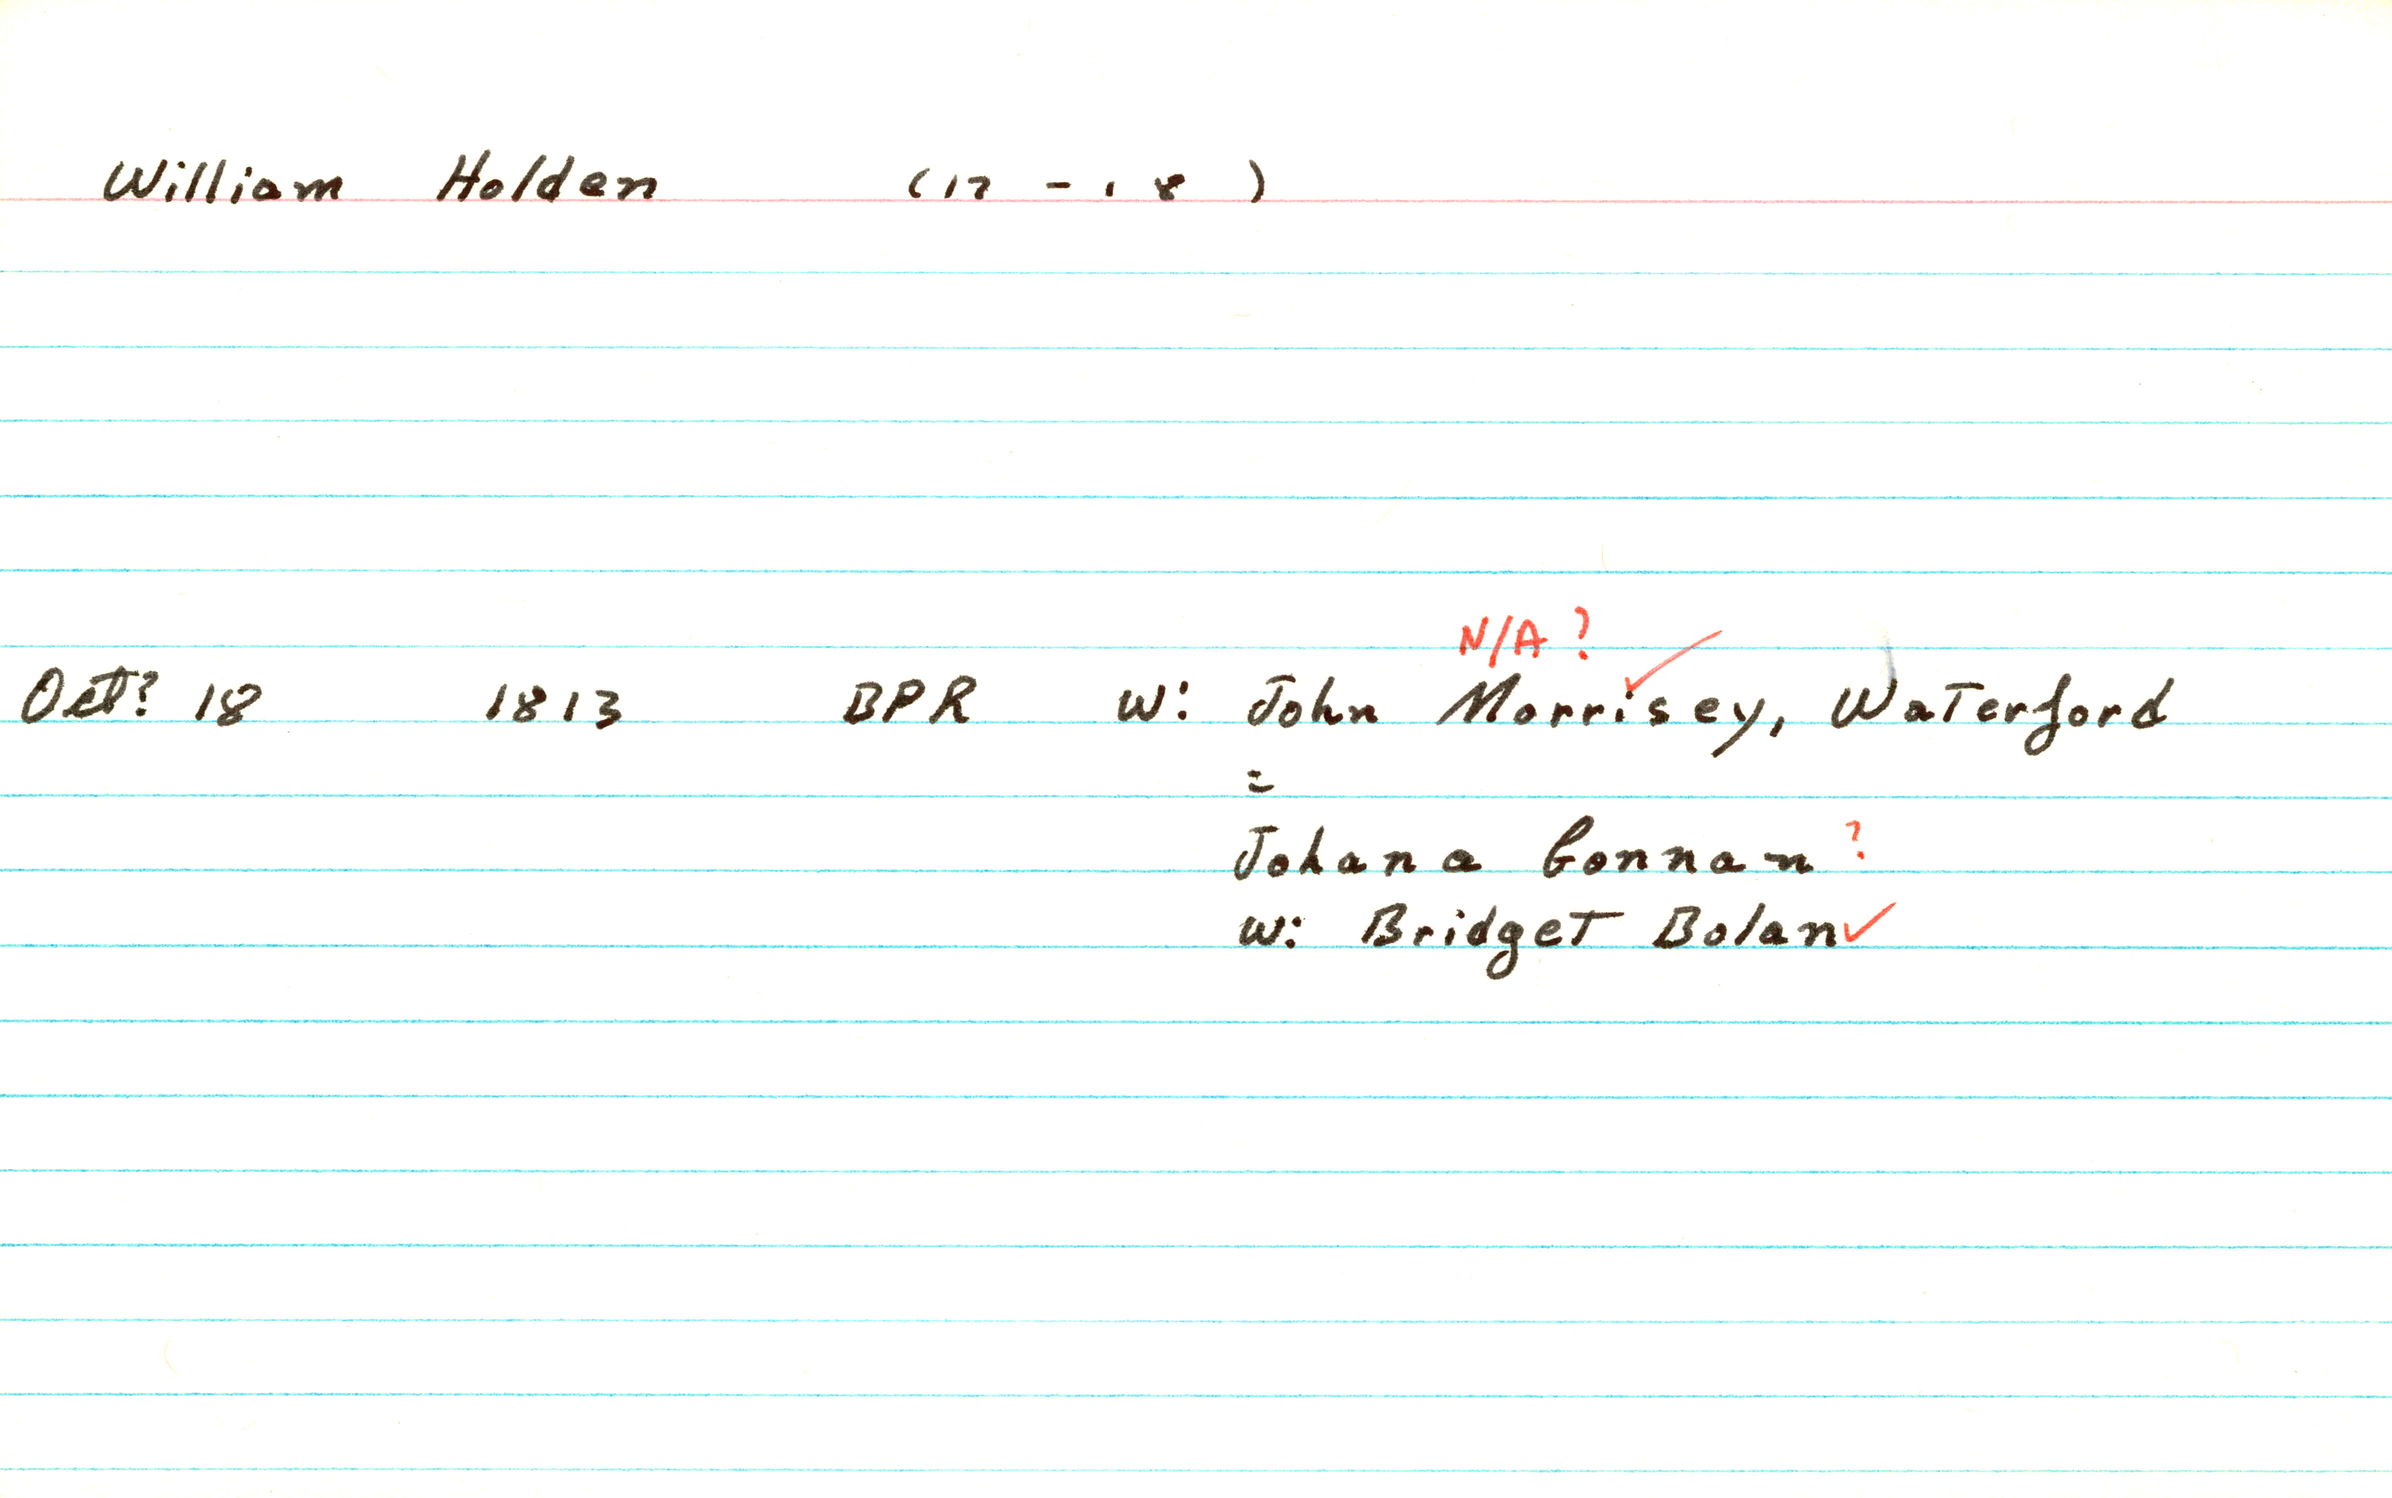 William Holden (17 - 18 )
N/A ? ✓
Oct? 18 1813 BPR W: John Morrisey, Waterford
=
Johana Connan ?
W: Bridget Bolan ✓